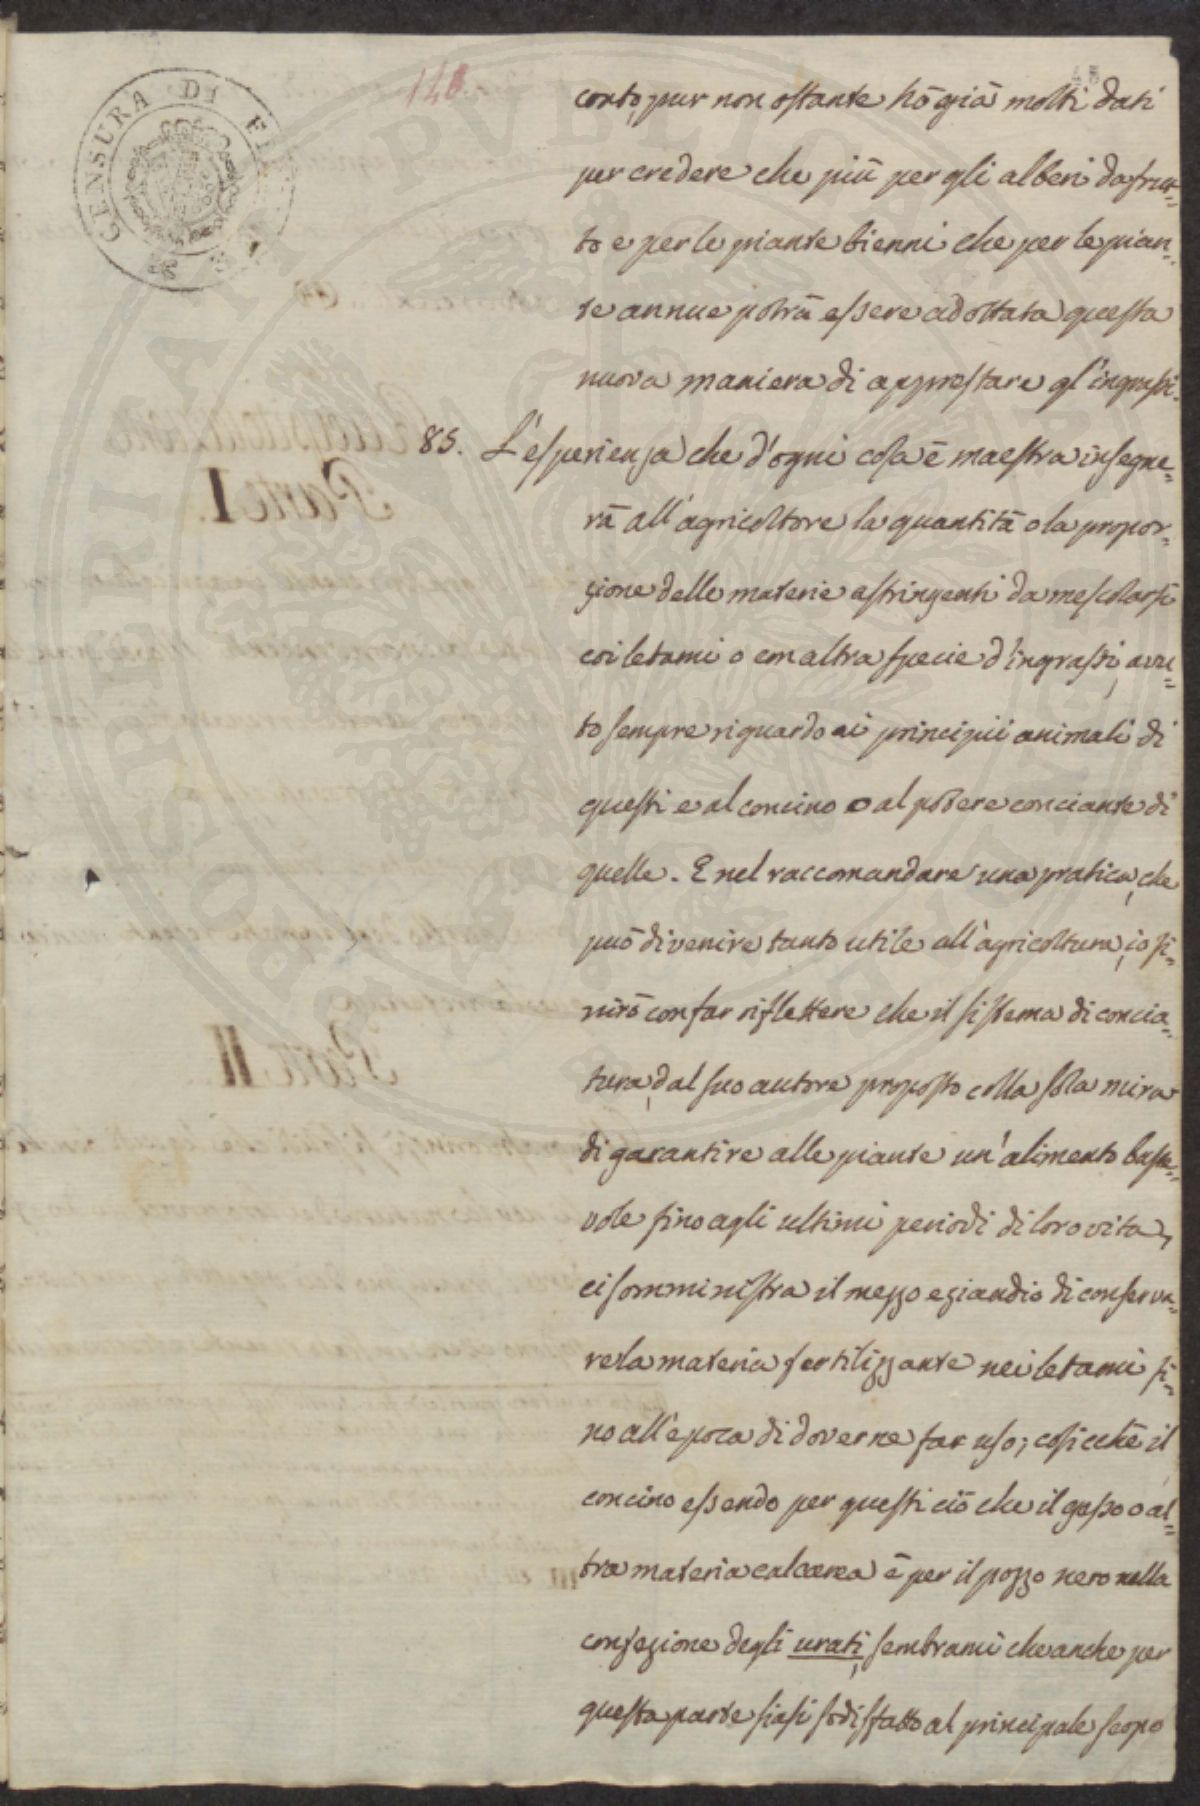 148
45
CENSURA DI FI
conto, pur non ostante hò già molti dati
per credere che più per gli alberi da frut=
to e per le piante bienni che per le pian=
te annue potrà essere adottata questa
nuova maniera di apprestare gl'ingrassi.
85. L'esperienza che d'ogni cosa è maestra insegne=
rà all'agricoltore la quantità o la propor=
zione delle materie astringenti da mescolarsi
coi letami o con altra specie d'ingrassi, avu=
to sempre riguardo ai principii animali di
questi e al concino o al potere conciante di
quelle. E nel raccomandare una pratica, che
può divenire tanto utile all'agricoltura, io fi=
nirò con far riflettere che il sistema di concia=
tura, dal suo autore proposto colla sola mira
di garantire alle piante un'alimento baste=
vole fino agli ultimi periodi di loro vita,
ci somministra il mezzo eziandio di conserva=
re la materia fertilizzante nei letami fi=
no all'epoca di doverne far uso; cosicchè il
concino essendo per questi ciò che il gesso o al=
tra materia calcarea è per il pozzo nero nella
confezione degli urati, sembrami che anche per
questa parte siasi sodisfatto al principale scopo
Parte I
Parte II